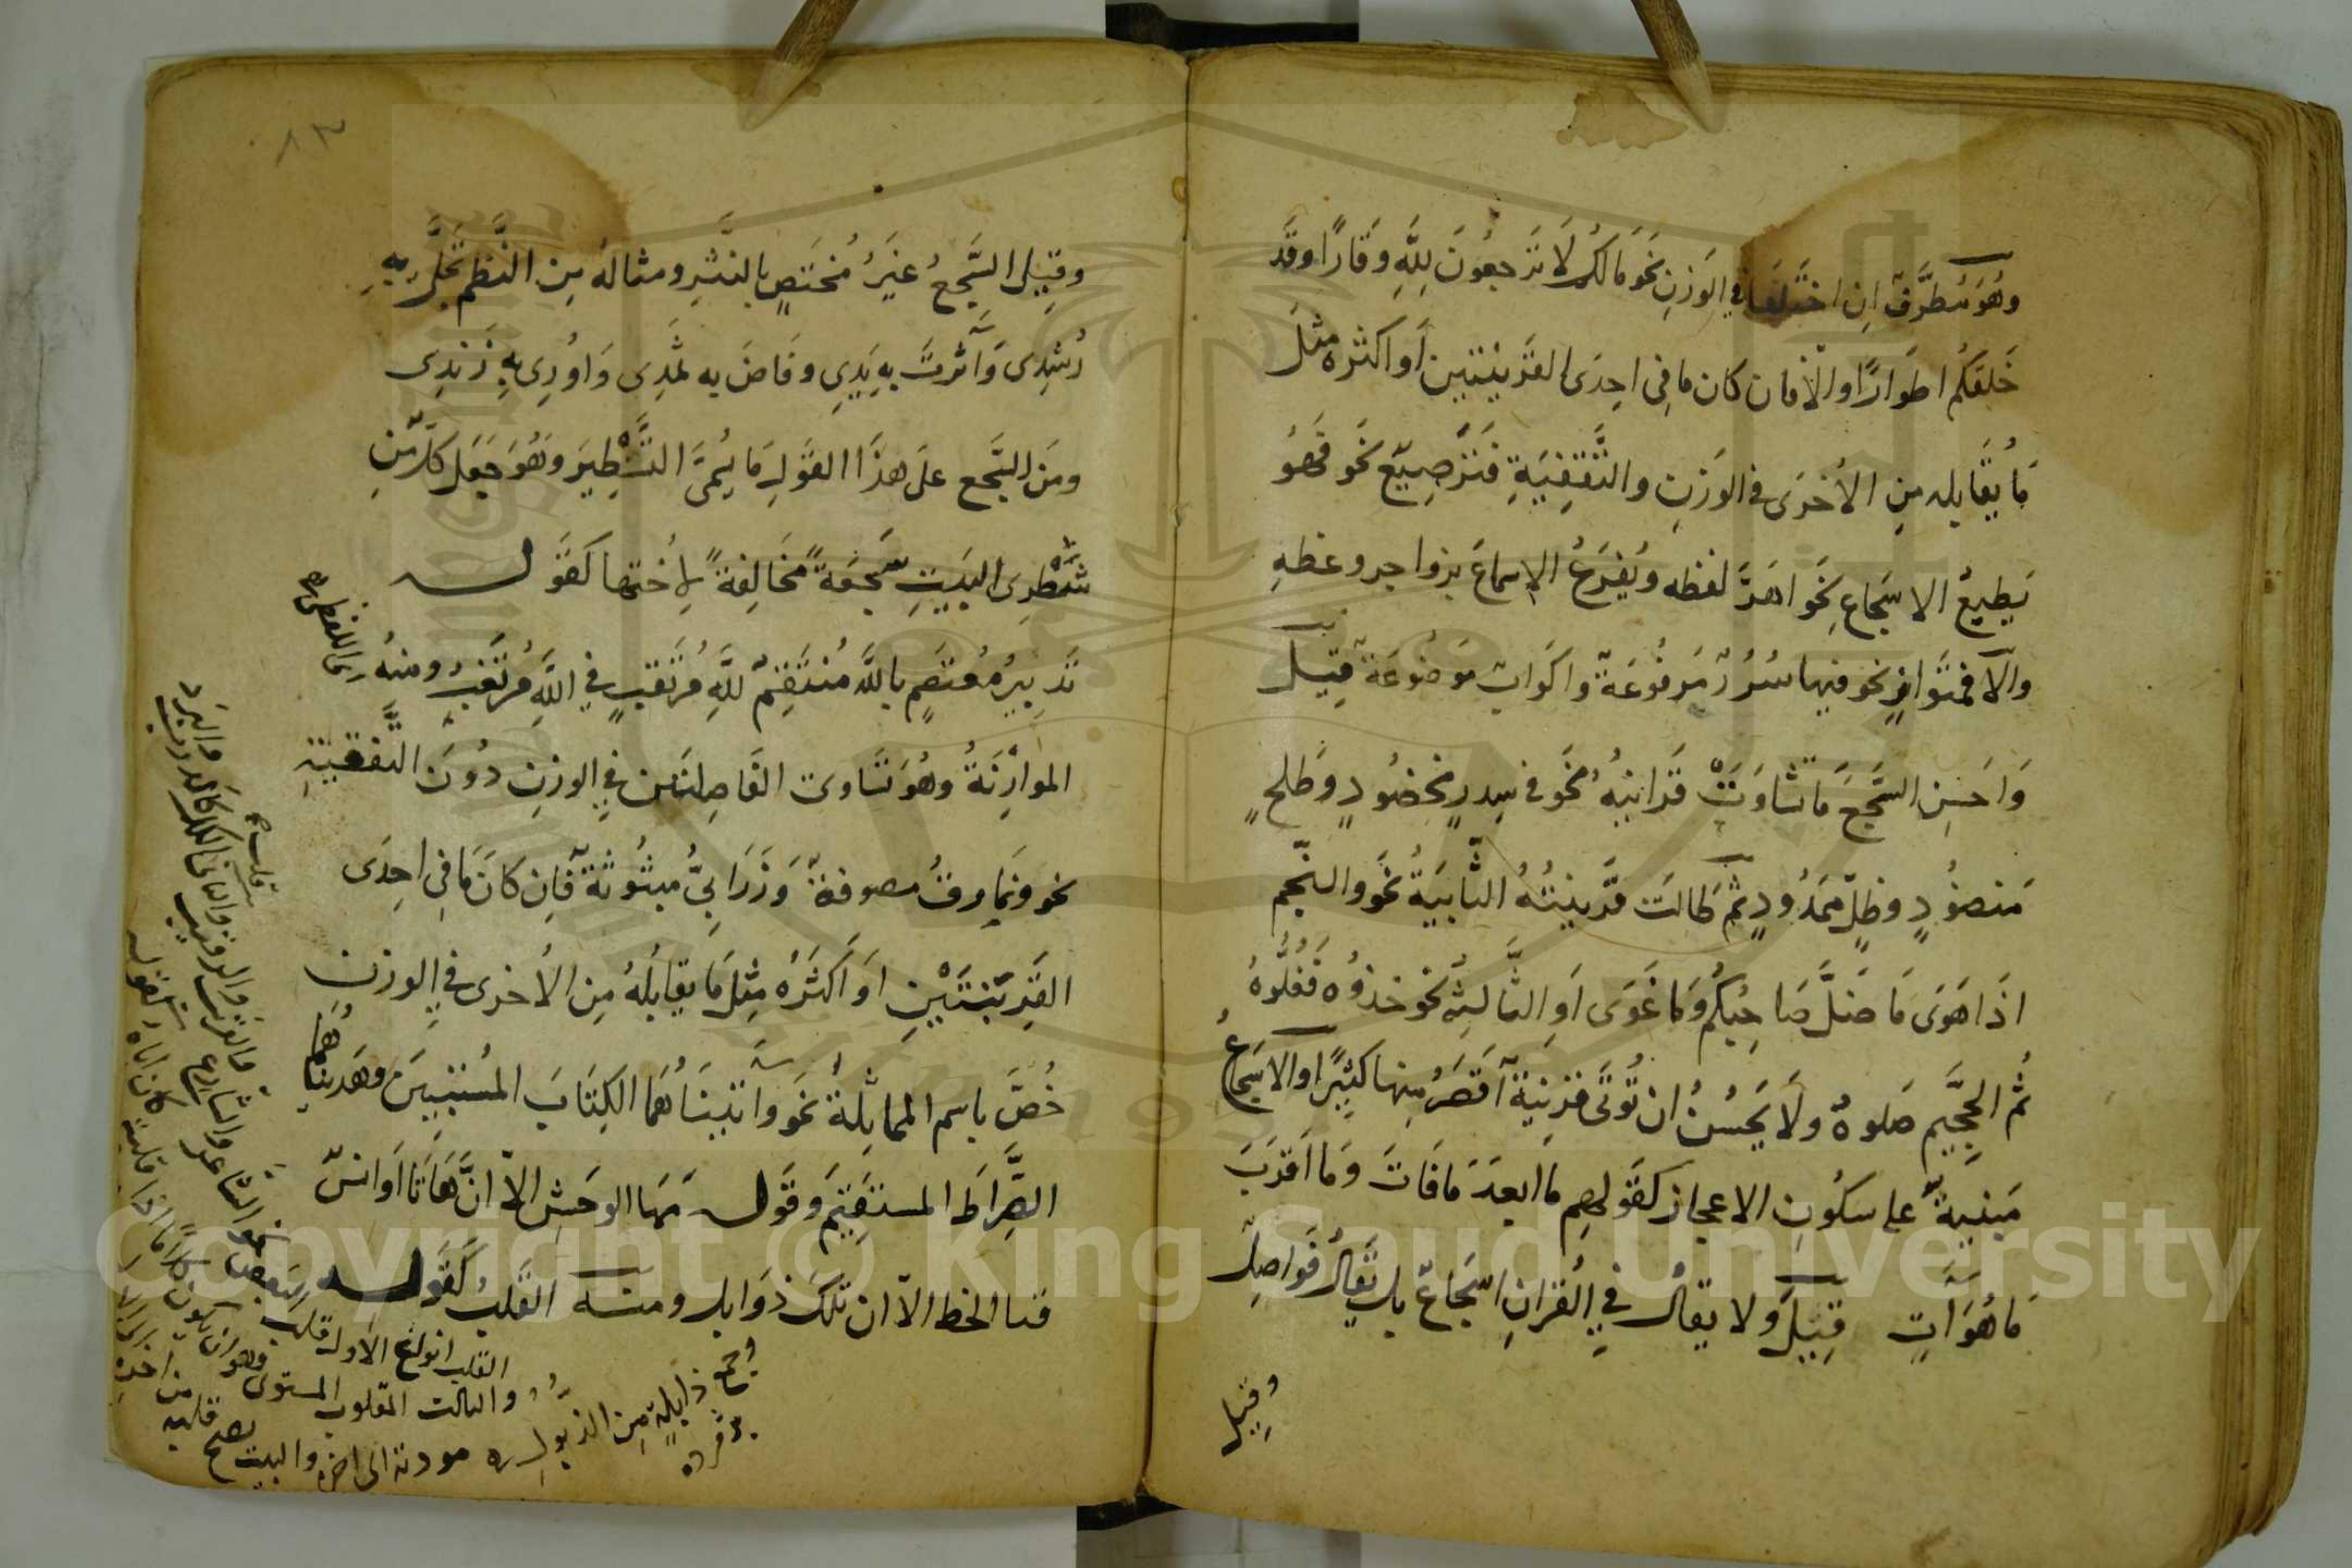 وهو مطرف ان اختلفا في الوزن نحو مالكم لا ترجعون لله وقارا وقد
خلقكم اطوارا والا فان كان ما في احدى القرينتين او اكثره مثل
ما يقابله من الأخرى في الوزن والتقفية فترصيع نحو فهو
يطبع الاسجاع نحواهر لفظه ويقرع الاسماع بزواجر وعظه
والا فمتواز نحو فيها سرر مرفوعة واكواب موضوعة قيل
واحسن السجع ما تساوت قراينه نحو في سدر مخضود وطلح
منضود وظل ممدود ثم طالت قرينته الثانية نحو والنجم
اذا هوى ما ضل صاحبكم وما غوى او الثالثة نحو خذوه فغلوه
ثم الجحيم صلوه ولا يحسن ان توتى قرينة اقصر منها كثيرا والاسجاع
مبنية على سكون الاعجاز كقولهم ما ابعد ما فات وما اقرب
ما هو آت قيل ولا يقال في القران اسجاع بل يقال فواصل
وقيل
٨٣
وقيل السجع غير مختص بالنثر ومثاله من النظم تجلى به
رشدى وآثرت به يدي وفاض به ثمدى واورى به زندى
ومن السجع على هذا القول ما يسمى التشطير وهو جعل كل من
شطرى البيت سجعة مخالفة لاختها كقوله
تدبير معتصم بالله منتقم لله مرتقب في الله مرتغب ومنه
الموازنة وهو تساوى الفاصلتين في الوزن دون التقفية
نحو ونمارق مصفوفة وزرابي مبثوثة فان كان ما في احدى
القرينتين او اكثره مثل ما يقابله من الأخرى في الوزن
خص باسم المماثلة نحو وآتيناهما الكتاب المستبين وهديناهما
الصراط المستقيم وقوله مها الوحش الا ان هاتا اوانس
قنا الخط الا ان تلك ذوابل ومنه القلب كقوله
جمع ذابلة من الذبول
القلب انواع الاول قلب البعض نحو الشاعر والشارع
والثالث المقلوب المستوى وهو ان يكون
مودته الى اخره والبيت يصح قلبه من اخره